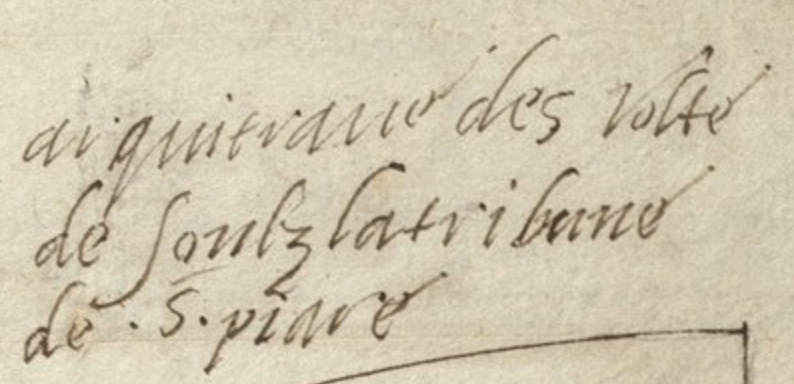 arquitraue des volte
de soulz latribune
de .S. piare